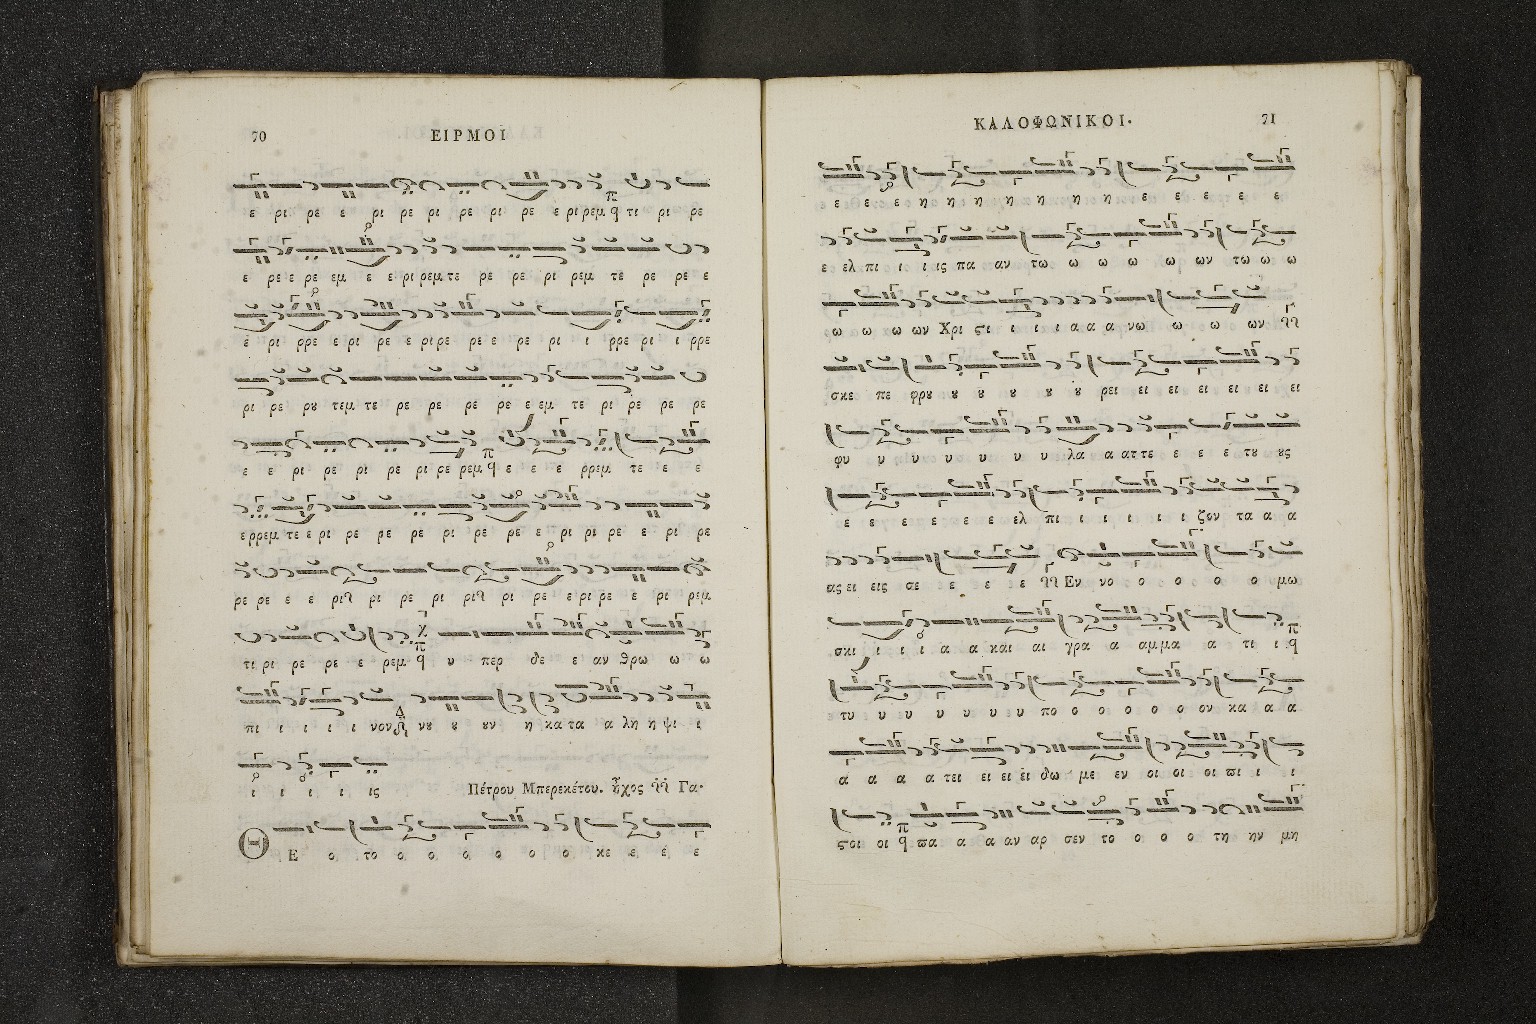 70
ΕΙΡΜΟΙ
ε ρι ρε ε ρι ρε ρι ρε ρι ρε ε ρι ρεμ τι ρι ρε
ε ρε ε ρε εμ ε ε ρι ρεμ τε ρε ρε ρι ρεμ τε ρε ρε ε
ε ρι ρρε ε ρι ρε ε ρι ρε ρε ε ρε ρι ι ρρε ρι ι ρρε
ρι ρε ρȣ τεμ τε ρε ρε ρε ρε ε εμ τε ρι ρε ρε ρε
ε ε ρι ρε ρι ρε ρι ρε ρεμ ε ε ε ρρεμ τε ε ε
ε ρρεμ τε ε ρι ρε ρε ρε ρι ρε ρε ε ρι ρι ρε ε ρι ρε
ρε ρε ε ε ρι ρι ρε ρι ρι ρι ρε ε ρι ρε ε ρι ρεμ
τι ρι ρε ρε ε ρεμ υ περ δε ε αν θρω ω ω
πι ι ι ι ι νον νȣ ȣ ȣν η κα τα α λη η ψι ι
ι ι ι ι ις
Πέτρου Μπερεκέτου. ἦχος Γα.
ΘΕ ο το ο ο ο ο ο ο κε ε ε ε
ΚΑΛΟΦΩΝΙΚΟΙ.
71
ε ε ε η η η η η η η ε ε ε ε ε
ε ελ πι ι ι ις πα αν τω ω ω ω ω ων τω ω ω
ω ω ω ων Χρι ϛι ι ι ι α α α νω ω ω ων
σκε πε φρȣ ȣ ȣ ȣ ȣ ȣ ρει ει ει ει ει ει ει
φυ υ υ υ υ υ υ λα α ατ τε ε ε ε τȣ ȣς
ε ε ε ε ε ε ελ πι ι ι ι ι ι ζον τα α α
ας ει εις σε ε ε ε ε Εν νο ο ο ο ο ο μω
σκι ι ι ι α α και αι γρα α αμ μα α τι ι
τυ υ υ υ υ υ υ πο ο ο ο ο ο ον κα α α
α α α α τει ει ει ει δω με εν οι οι οι ϖι ι ι
ϛοι οι ϖα α α αν αρ σεν το ο ο ο τη ην μη